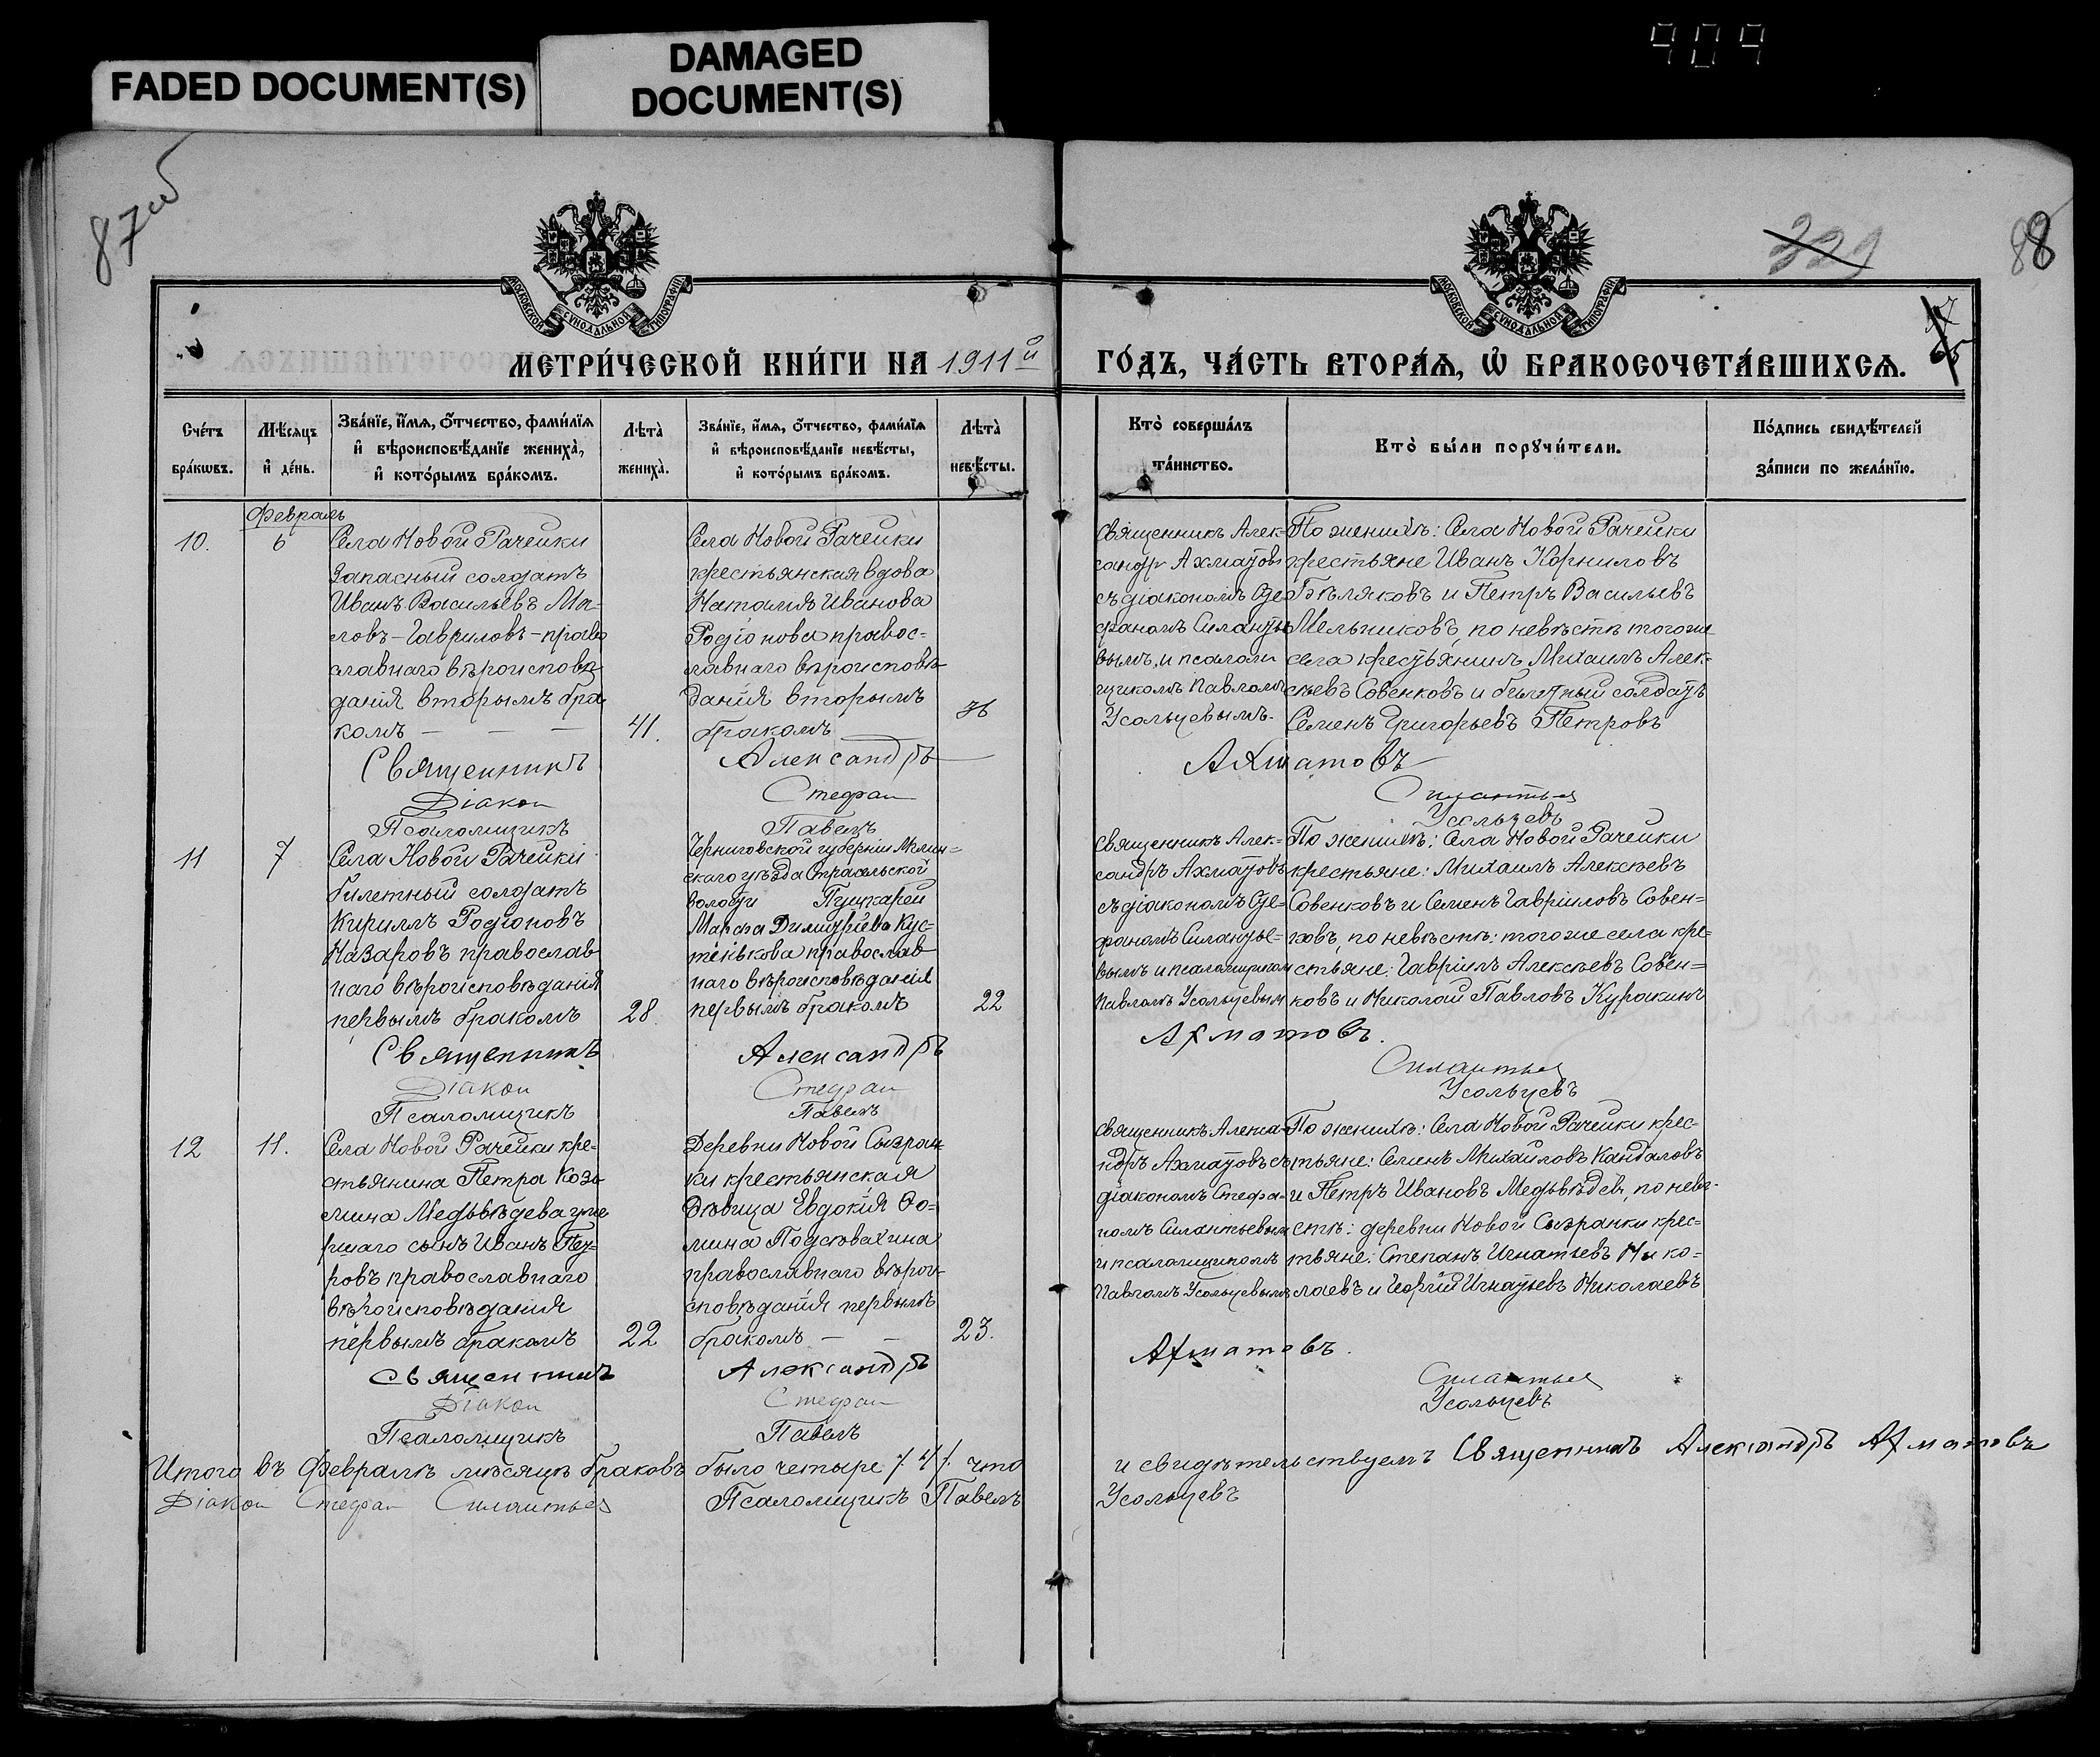 909
FADED DOCUMENT(S)
DAMAGED
DOCUMENT(S)
87об
88
329
МОСКОВСКОЙ СѴНОДАЛЬНОЙ ТИПОГРАФІИ
МОСКОВСКОЙ СѴНОДАЛЬНОЙ ТИПОГРАФІИ
МЕТРИ́ЧЕСКОЙ КНИ́ГИ НА 1911й ГО́ДЪ, ЧА́СТЬ ВТОРА́Ѧ, Ѽ БРАКОСОЧЕТА́ВШИХСѦ.
Сче́тъ
бра́кѡвъ.
Мѣ́сѧцъ
и҆ де́нь.
Зва́нїе, и҆́мѧ, ѻ҆́тчество, фами́лїѧ
и҆ вѣроисповѣ́данїе жениха̀,
и҆ кото́рымъ бра́комъ.
Лѣта̀
жениха̀.
Зва́нїе, и҆́мѧ, ѻ҆́тчество, фами́лїѧ
и҆ вѣроисповѣ́данїе невѣ́сты,
и҆ кото́рымъ бра́комъ.
Лѣта̀
невѣ́сты.
Кто̀ соверша́лъ
та́инство.
Кто̀ бы́ли порꙋчи́тели.
По́дпись свидѣ́телей
за́писи по жела́нїю.
Февраль
10.
6
Села Новой Рачейки
запасный солдатъ
Иванъ Васильевъ Ма-
ловъ-Гавриловъ-право
славнаго вѣроисповѣ
данія вторымъ бра
комъ — — —
41.
Села Новой Рачейки
крестьянская вдова
Наталия Иванова
Родіонова правос-
лавнаго вѣроисповѣ-
данія вторымъ
бракомъ
36
Священникъ Алек-
сандръ Ахматовъ
съ діакономъ Сте-
фаномъ Силантье
вымъ и псалом
щикомъ Павломъ
Усольцевымъ.
По женихѣ: Села Новой Рачейки
крестьяне Иванъ Корниловъ
Бѣляковъ и Петръ Васильевъ
Мельниковъ, по невѣстѣ того же
села крестьянинъ Михаилъ Алек-
сѣевъ Совенковъ и билетный солдатъ
Семенъ Григорьевъ Петровъ
Священникъ Александръ Ахматовъ
Діакон Стефан Силантьев
Псаломщикъ Павелъ Усольцевъ
11
7
Села Новой Рачейки
билетный солдатъ
Кириллъ Родіоновъ
Назаровъ православ
наго вѣроисповѣданія
первымъ бракомъ
28.
Черниговской губерніи Мглин=
скаго уѣзда Старосельской
волости Пуцкарей
Марфа Димитріева Кус-
тенькова православ
наго вѣроисповѣданія
первымъ бракомъ
22
Священникъ Алек-
сандръ Ахматовъ
съ діакономъ Сте-
фаномъ Силантье-
вымъ и псаломщиком
Павломъ Усольцевым
По женихѣ: Села Новой Рачейки
крестьяне: Михаилъ Алексѣевъ
Совенковъ и Семенъ Гавріиловъ Совен=
ковъ, по невѣстѣ: того же села кре-
стьяне: Гавріилъ Алексѣевъ Совен=
ковъ и Николай Павловъ Куракинъ
Священникъ Александръ Ахматовъ.
Діакон Стефан Силантьев
Псаломщикъ Павелъ Усольцевъ
12
11.
Села Новой Рачейки кре-
стьянина Петра Козь
мина Медьвѣдева уме
ршаго сынъ Иванъ Пет-
ровъ православнаго
вѣроисповѣданія
первымъ бракомъ
22
Деревни Новой Сызран
ки крестьянская
дѣвица Евдокія Фо-
мина Подсѣвахина
православнаго вѣрои-
сповѣданія первымъ
бракомъ — —
23.
Священникъ Алекса
ндръ Ахматовъ съ
діакономъ Стефа-
номъ Силантьевым
и псаломщикомъ
Павломъ Усольцевымъ
По женихѣ: Села Новой Рачейки крес-
тьяне: Семенъ Михайловъ Кандаловъ
и Петръ Ивановъ Медьвѣдев, по невѣ-
стѣ: деревни Новой Сызранки крес-
тьяне: Степанъ Игнатьевъ Нико=
лаевъ и Георгій Игнатьевъ Николаевъ
Священникъ Александръ Ахматовъ.
Діакон Стефан Силантьев
Псаломщикъ Павелъ Усольцевъ
Итого въ Февралѣ мѣсяцѣ браковъ было четыре /4/. что и свидѣтельствуемъ Священникъ Александръ Ахматовъ
Діакон Стефан Силантьев Псаломщикъ Павелъ Усольцевъ